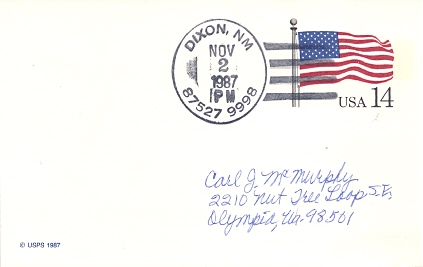 DIXON, NM
NOV
2
1987
1PM
87527 9998
USA 14
Carl J. McMurphy
2210 Nut Tree Loop S.E.
Olympia, Wa. 98501
© USPS 1987